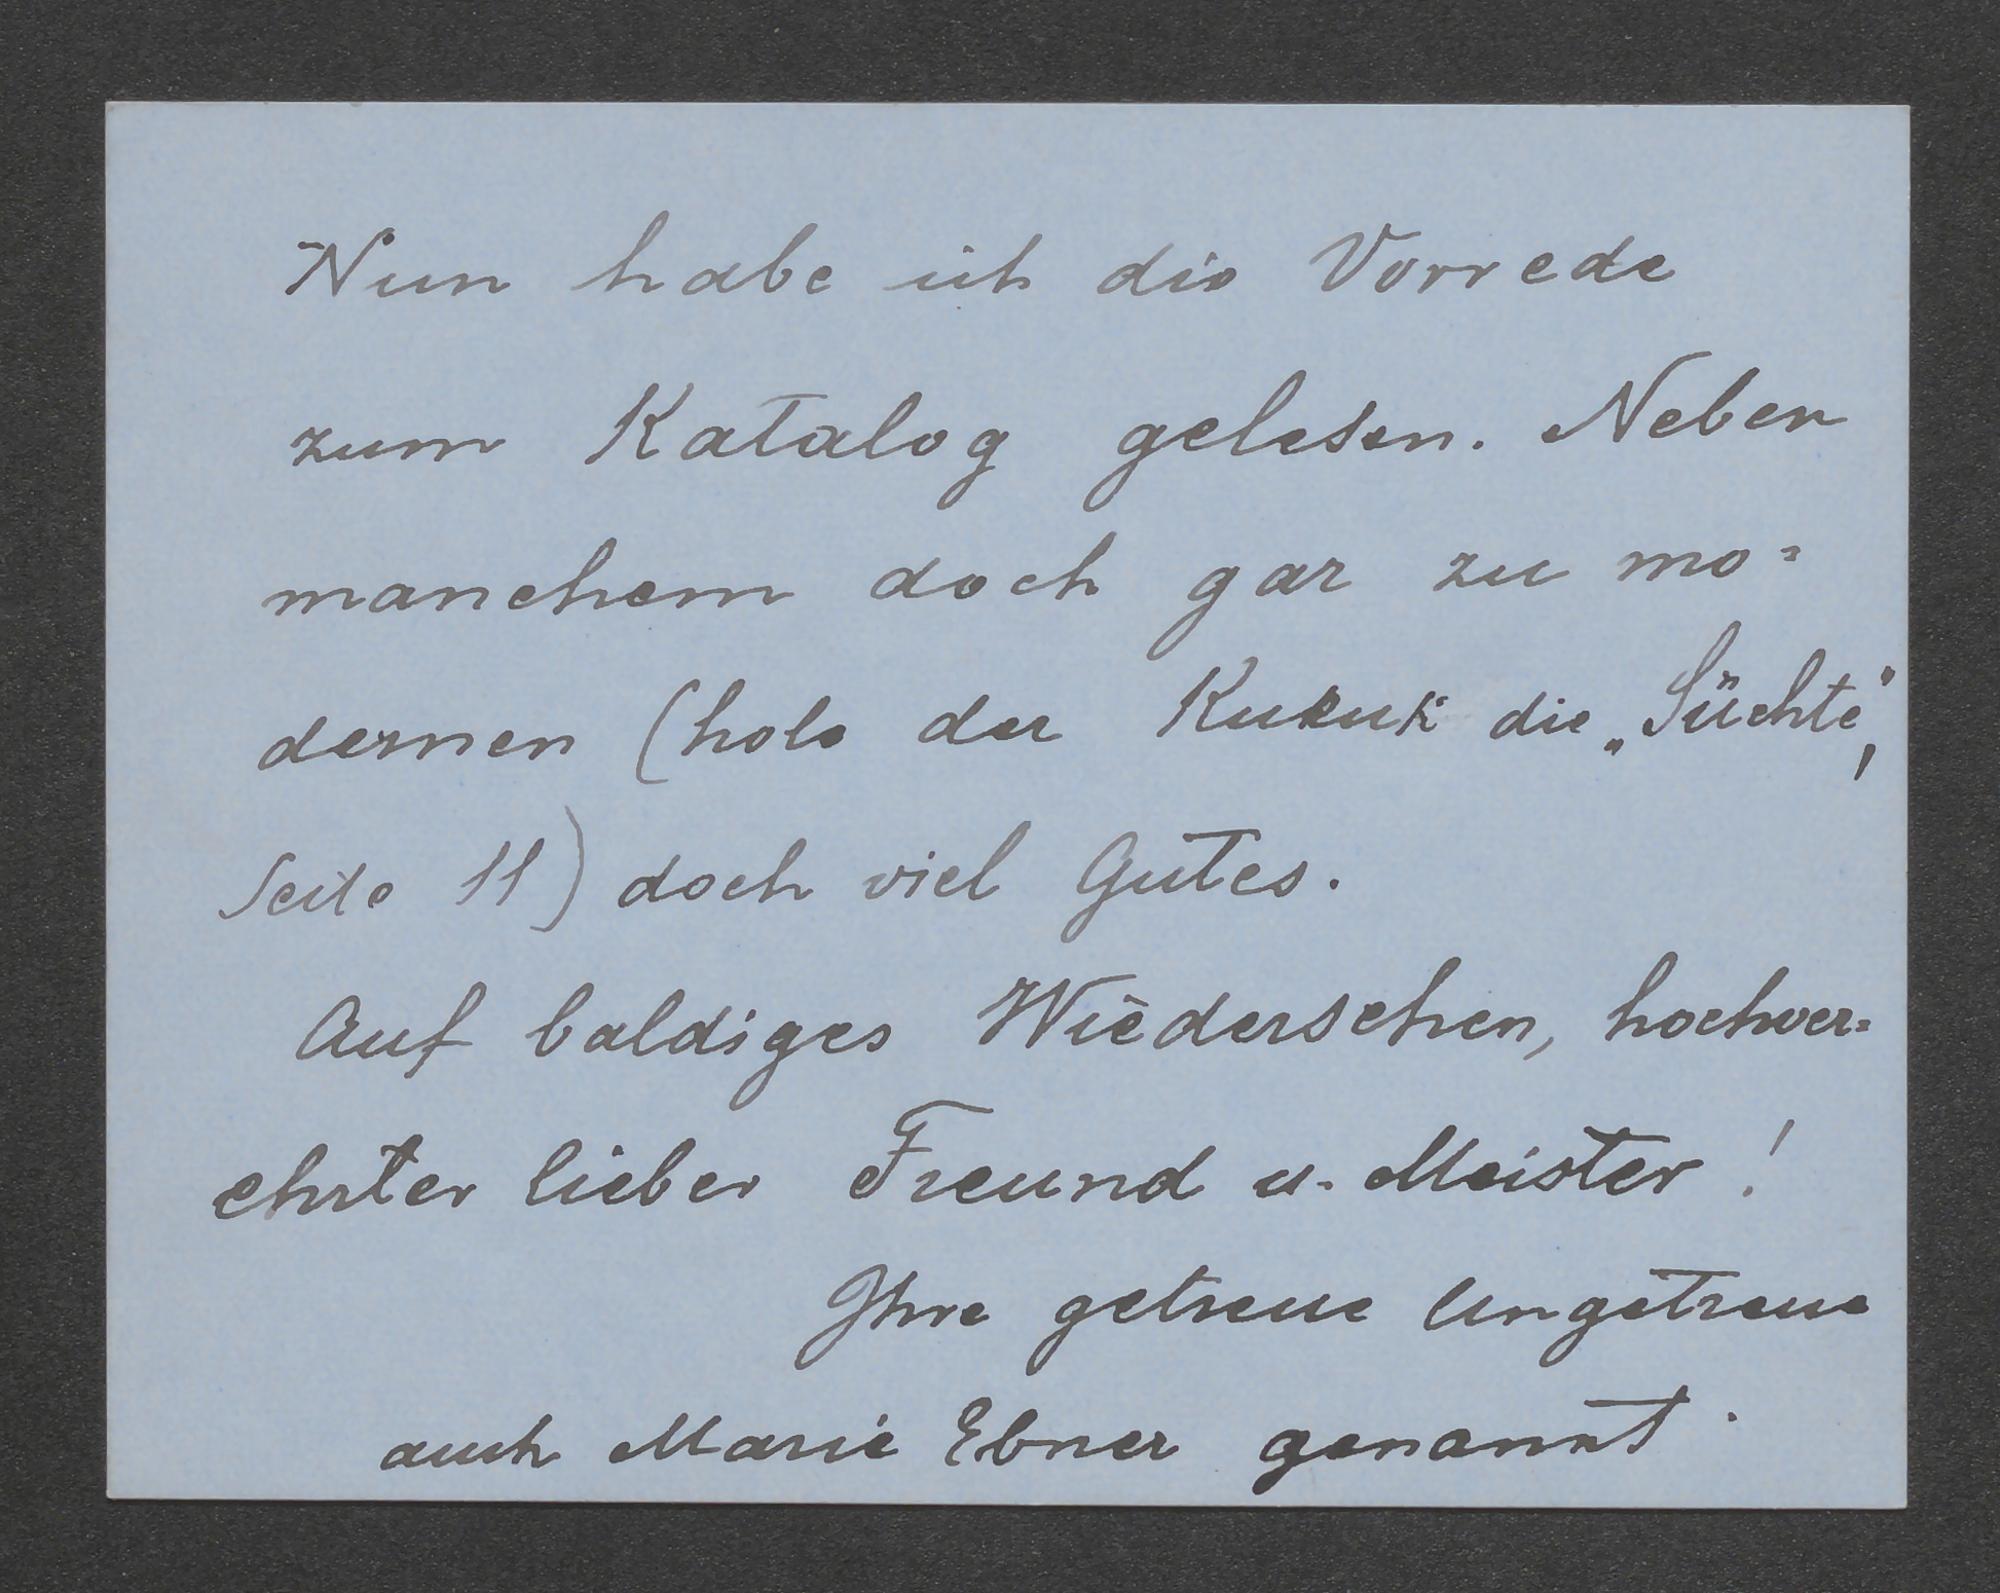 Nun habe ich die Vorrede
zum Katalog gelesen. Neben
manchem doch gar zu mo=
dernen (hole der Kukuk die „Süchte",
Seite 11) doch viel Gutes.
Auf baldiges Wiedersehen, hochver=
ehrter lieber Freund u. Meister!
Ihre getreue Ungetreue
auch Marie Ebner genannt.